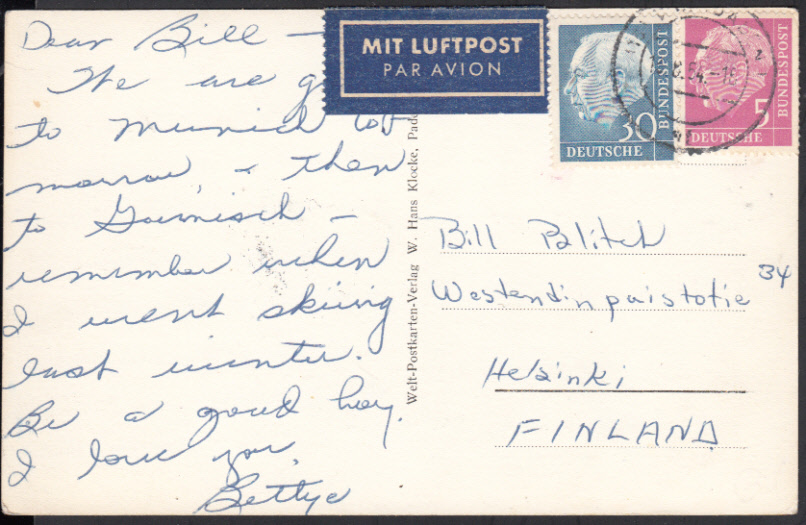 Dear Bill —
We are g
to Munich tom
morrow, & then
to Garmisch —
remember when
I went skiing
last winter.
Be a good boy.
I love you,
Bettye
MIT LUFTPOST
PAR AVION
30
DEUTSCHE
BUNDESPOST
5
DEUTSCHE
BUNDESPOST
Welt-Postkarten-Verlag W. Hans Klocke, Pade
Bill Politch
Westendinpuistotie 34
Helsinki
FINLAND